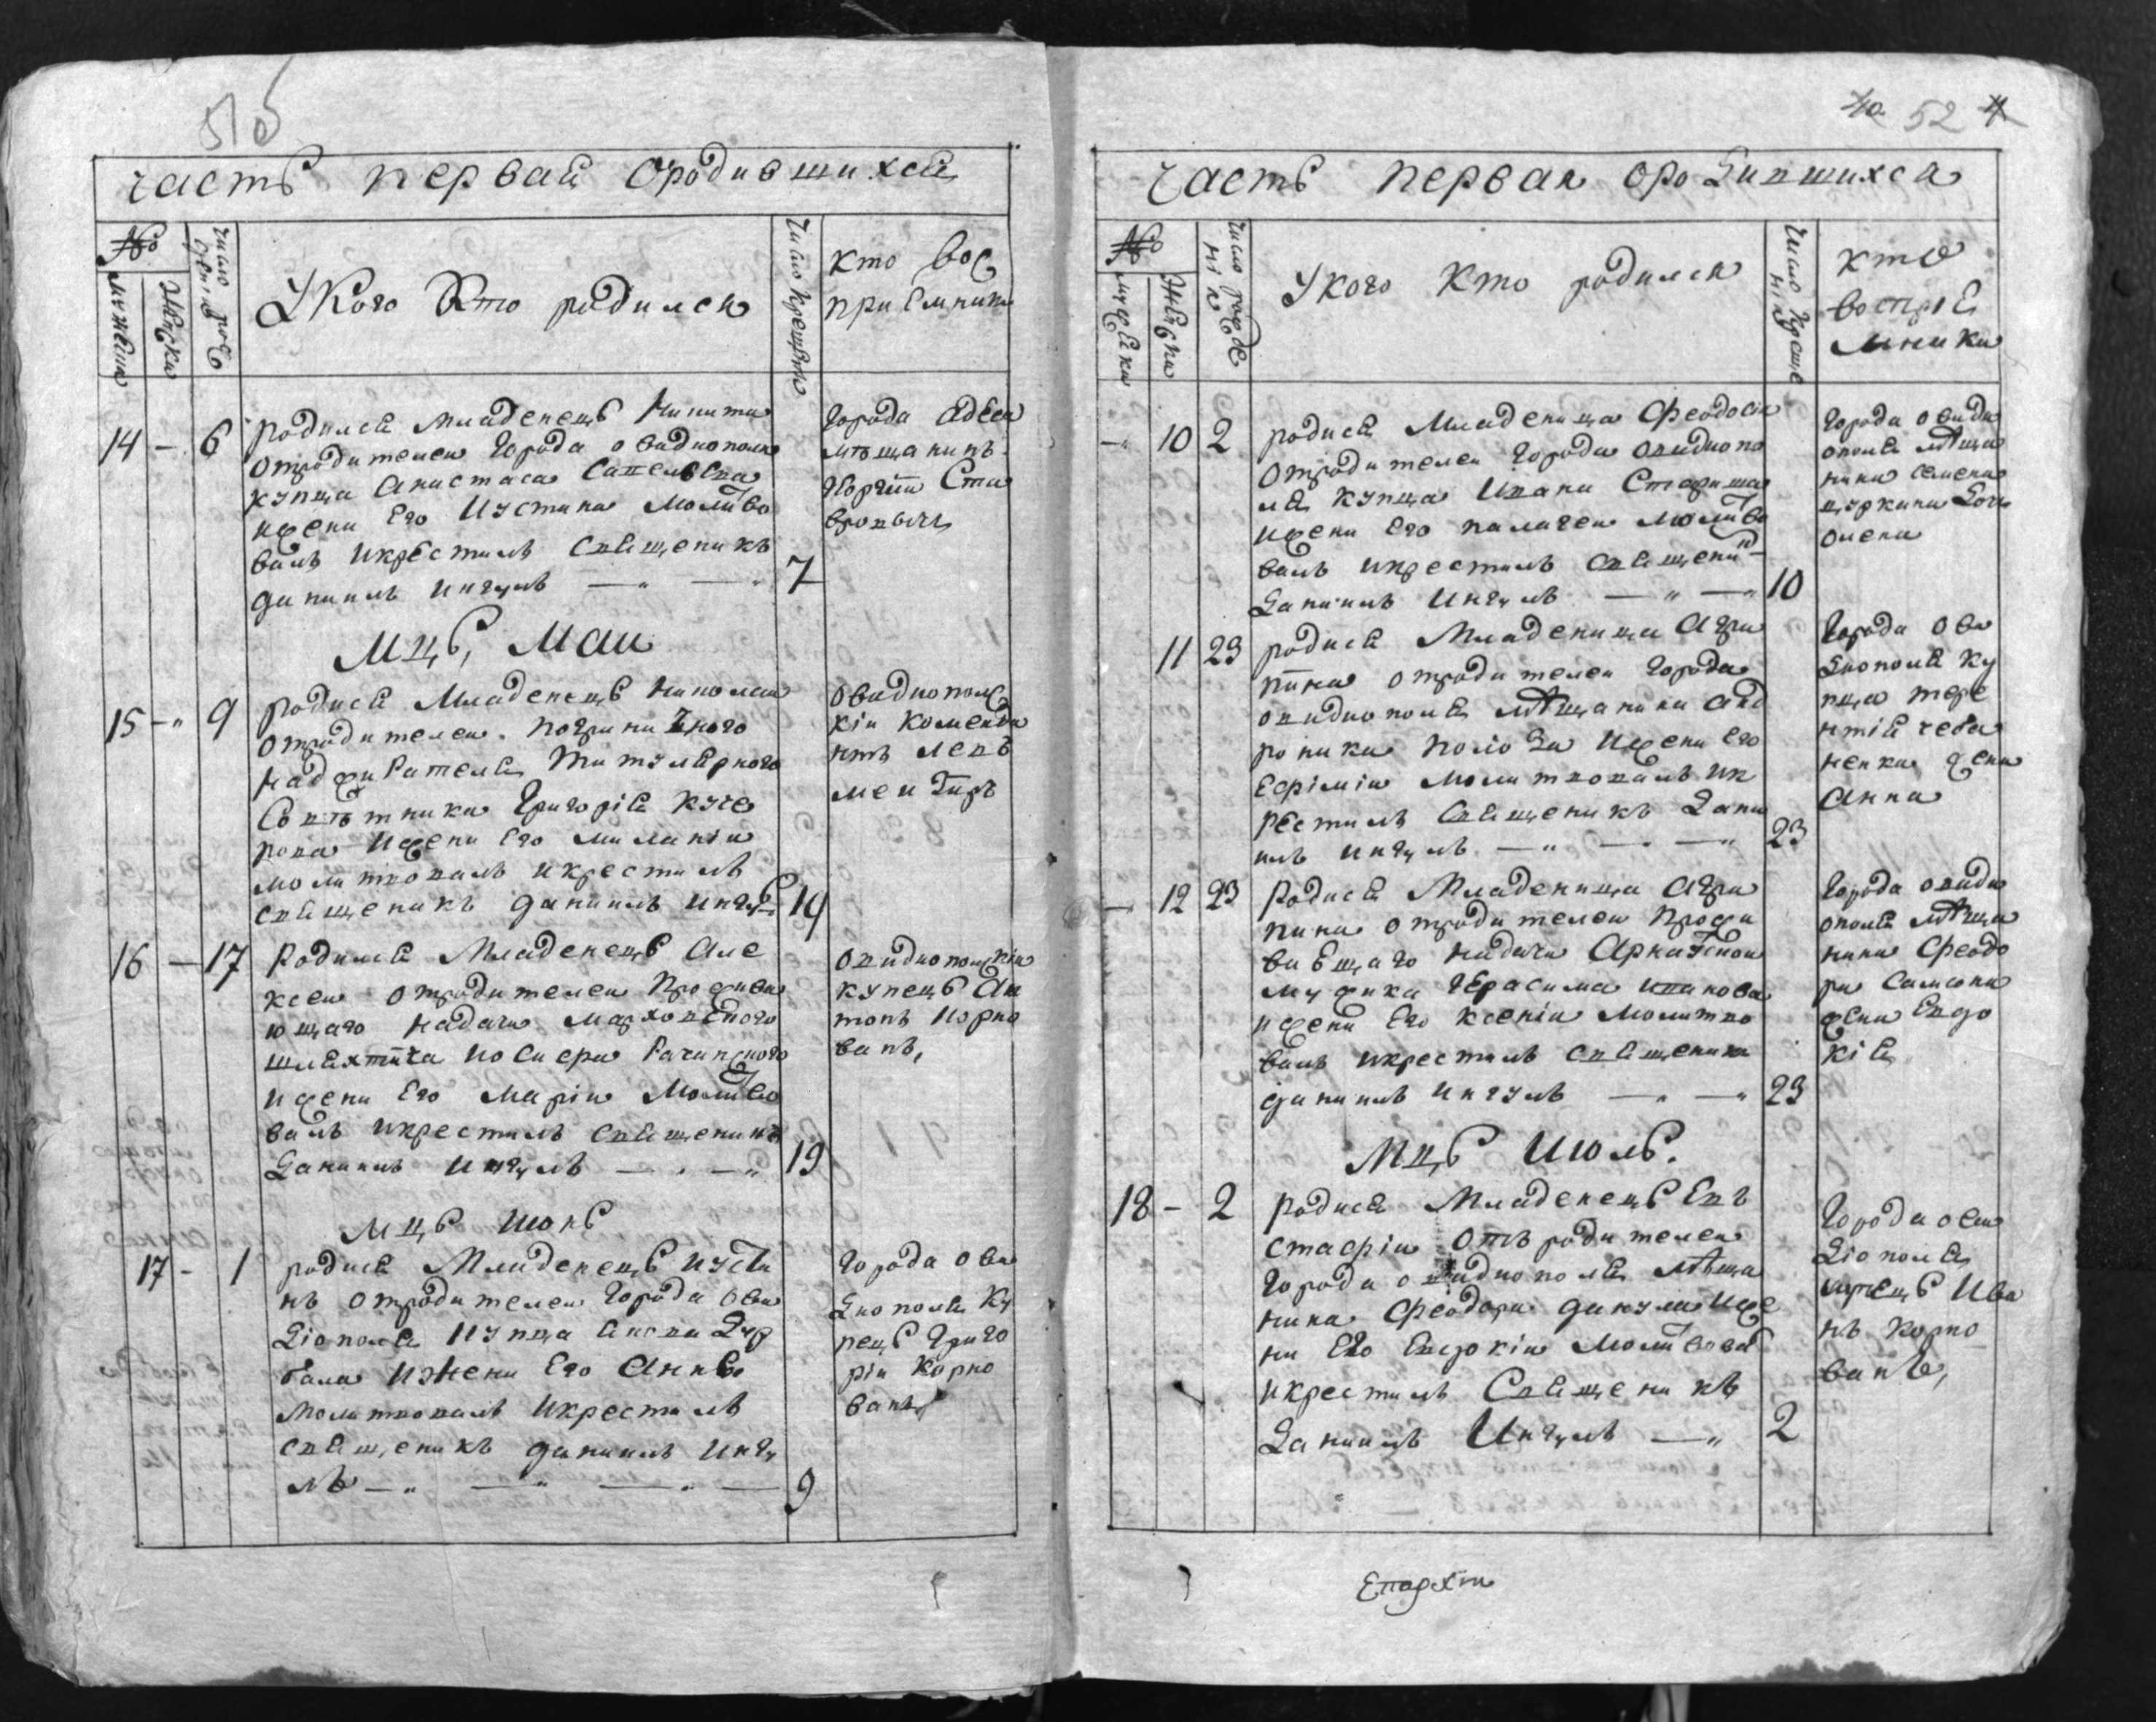 51об
часть первая ородившихся
№
мужеска
женска
число рожденія
Укого Кто родился
число крещенія
кто вос
приемники
14 - 6 родился младенецъ Никита
отродителей города овидиополя
купца Анастаса
ижены Его Иустины молитво
валъ икрестилъ священикъ
даниилъ ингулъ 7
города адеса
мѣщанинъ
Георгій Ста
вровичъ
Мцъ Маи
15 - 9 родися Младенецъ николаи
отродителей пограничного
надзирателя титулярного
Совѣтника григорія куче
рова ижены Его миланіи
молитвовалъ икрестилъ
священикъ даниилъ ингулъ 14
овидиополс
кіи коменда
нтъ
16 - 17 Родился Младенецъ але
ксеи отродителей прожива
ющаго надачи марховского
шляхтича иосифа Рачинского
ижены Его Маріи Молитво
валъ икрестилъ священикъ
даниилъ ингулъ 19
овидиополскіи
купецъ Ан
тонъ Корно
ванъ,
мцъ июнь
17 - 1 родися Младенецъ иусти
нъ отродителей города ови
діополя купца
ижени Его Анны
молитвовалъ икрестилъ
священикъ даниилъ ингу
лъ 9
города ови
диополя ку
пецъ григо
рій Корно
ванъ
52
часть первая ородившихся
№
мужеска
женска
число рожде
нія
Укого Кто родился
число креще
нія
кто
воспріе
мники
10 2 родися Младеница Феодосія
отродителей города овидиопо
ля купца Ивана
ижены Его палагеи молитво
валъ икрестилъ священик
даниилъ ингулъ 10
города овиди
ополя мѣща
нина семена
цуркана дочь
олена
11 23 родися Младеница Агри
пина отродителей города
овидиополя мѣщанина анд
роника ижены Его
Ефіміи молитвовалъ ик
рестилъ священикъ дани
илъ ингулъ 23
города ови
диополя ку
пца тере
нтія чеба
ненка жена
Анна
12 23 Родися Младеница Агри
пина отродителей прожи
ваещаго надачи
мужика герасима иванова
ижены Его ксеніи молитво
валъ икрестилъ священикъ
даниилъ ингулъ 23
города овиди
ополя мѣща
нина Феодо
ра
жена Евдо
кія
Мцъ Июль.
18 - 2 родися Младенецъ Евъ
стафіи отъ родителей
города овидиополя мѣща
нина Феодора ижe
ны Его Евдокіи молитвовал
икрестилъ Священикъ
даниилъ Ингулъ 2
города ови
діополя
купецъ Ива
нъ корно
ванъ,